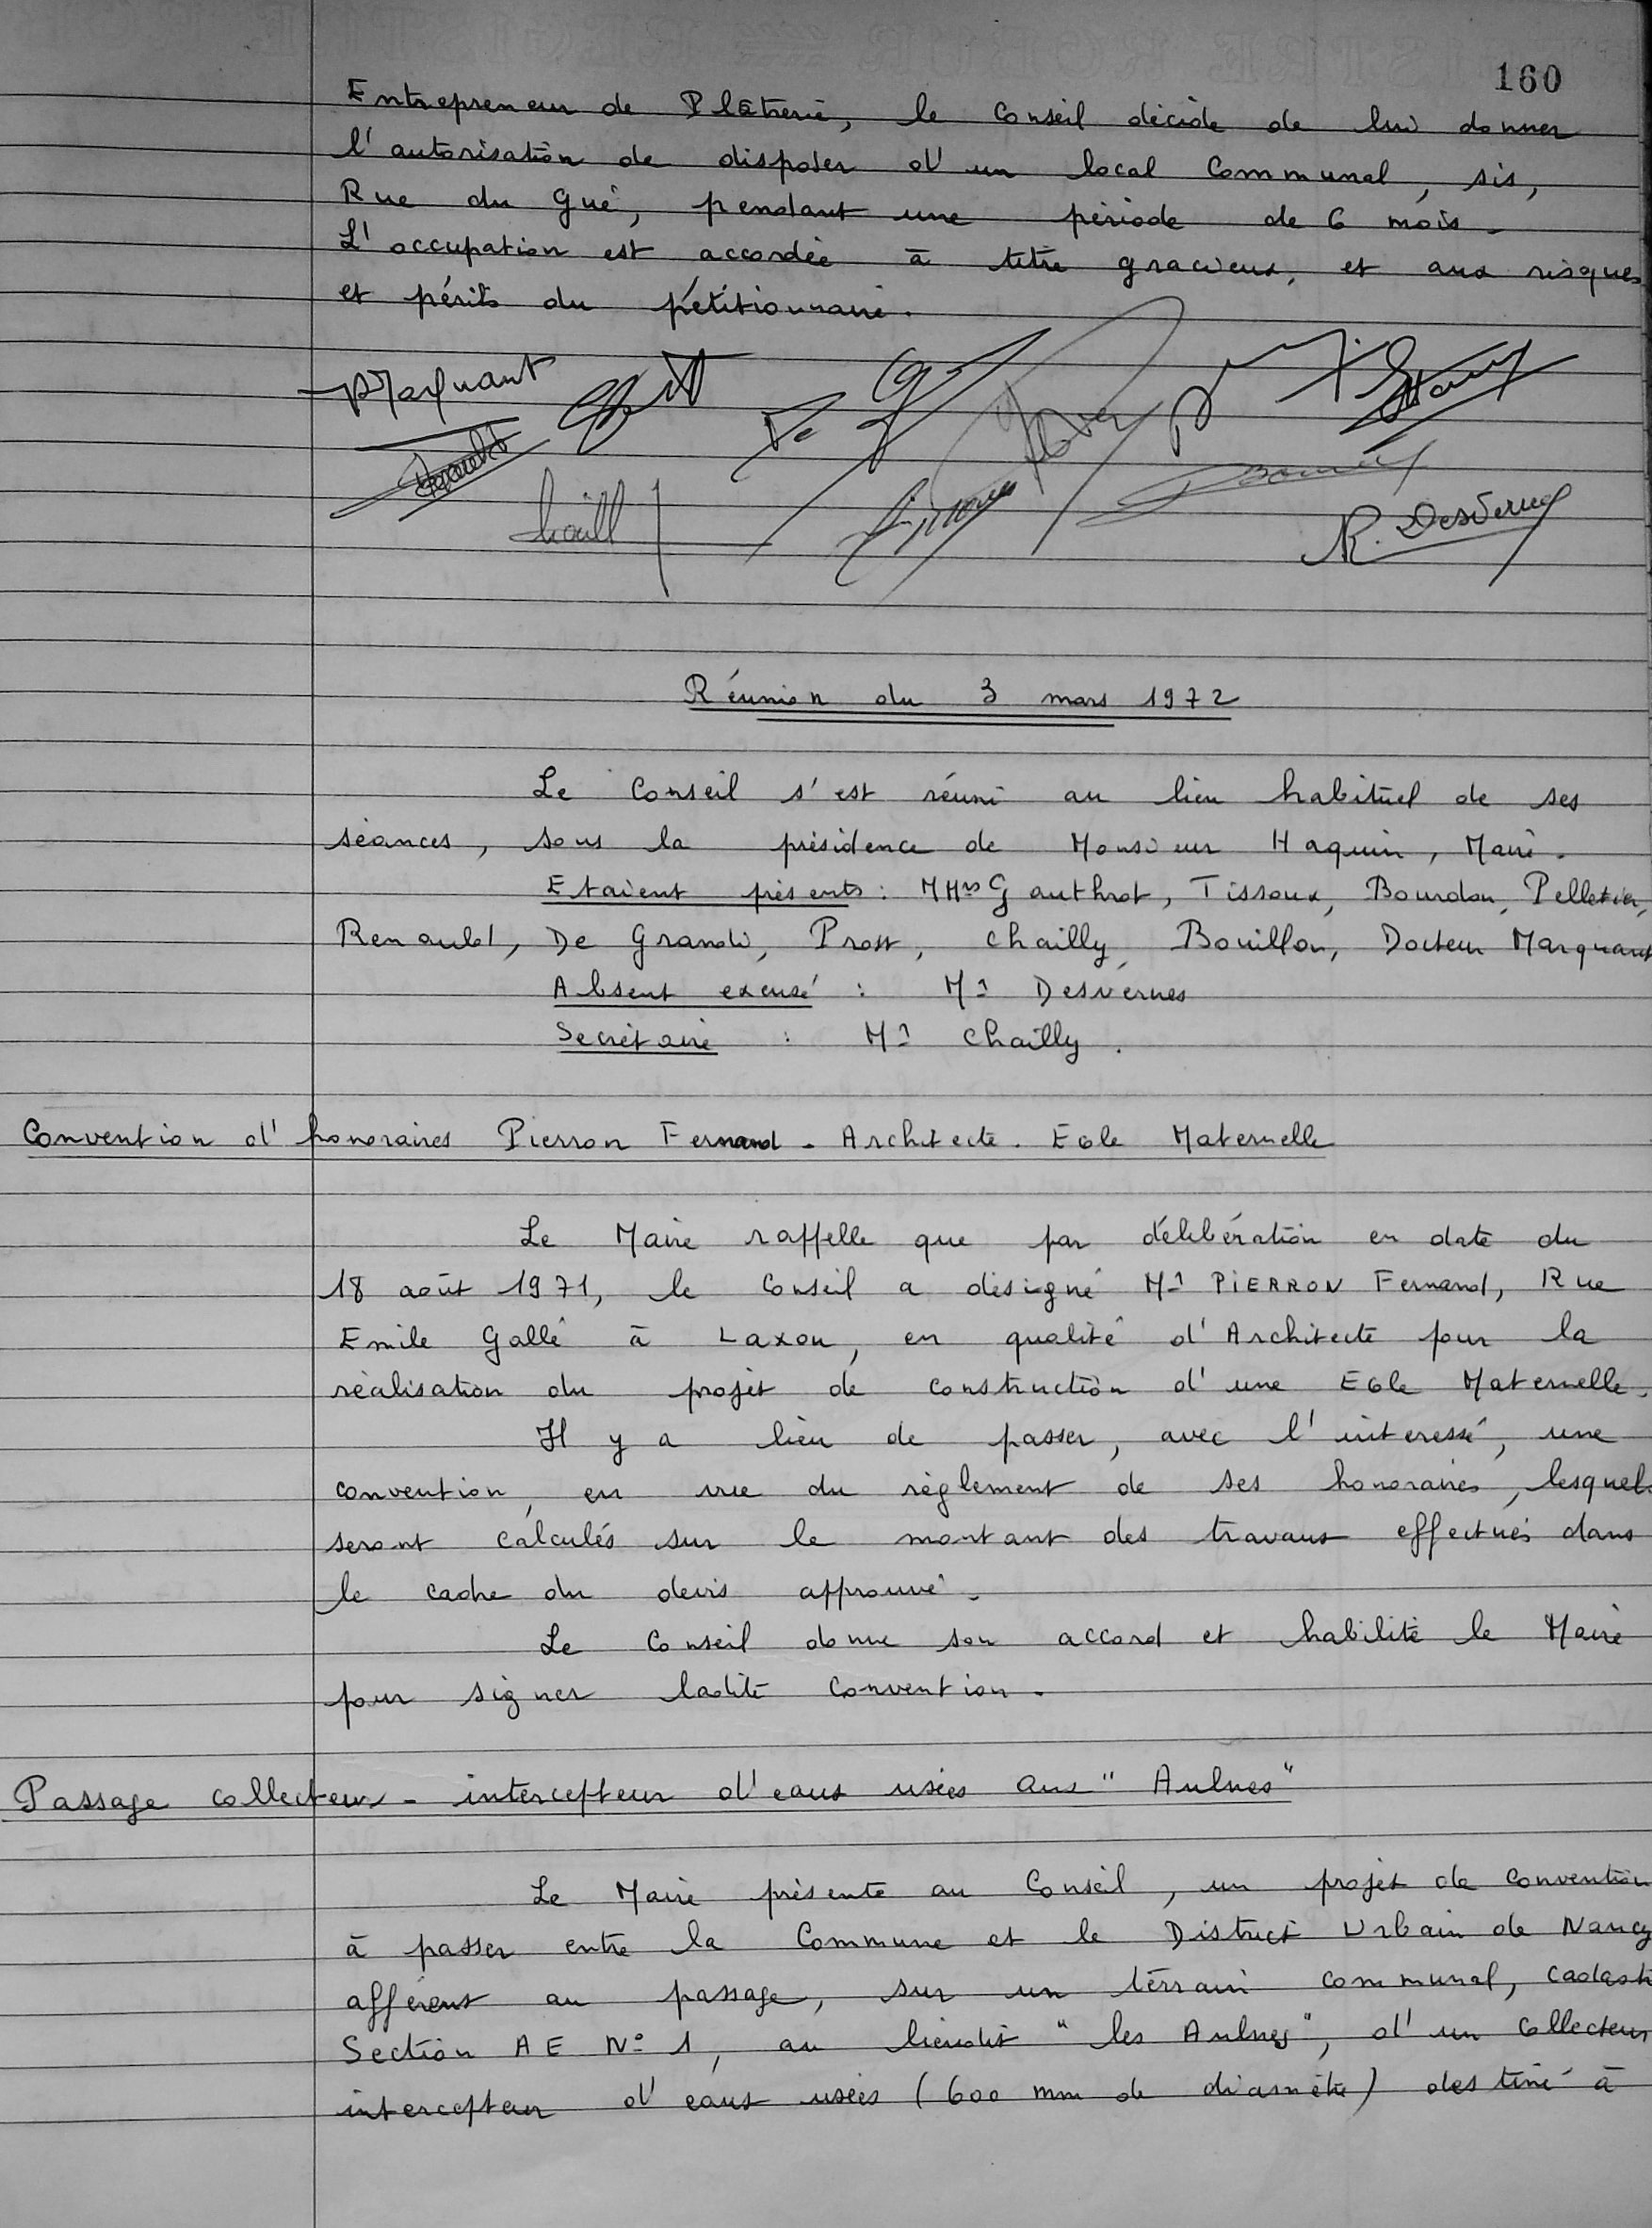 160
Entrepreneur de Plâtrerie, le Conseil décide de lui donner
l'autorisation de disposer d'un local Communal, sis,
Rue du Gué, pendant une période de 6 mois.
L'occupation est accordée à titre gracieux, et aux risques
et périls du pétitionnaire.
Marquant
Renauld
Chailly
R. Desvernes
Réunion du 3 mars 1972
Le Conseil s'est réuni au lieu habituel de ses
séances, sous la présidence de Monsieur Haquin, Maire.
Etaient présents : MMrs Gauthrot, Tissoux, Bourdon, Pelletier,
Renauld, De Grandi, Prost, Chailly, Bouillon, Docteur Marquant
Absent excusé : Mr Desvernes
Secrétaire : Mr Chailly.
Convention d'honoraires Pierron Fernand - Architecte. Ecole Maternelle
Le Maire rappelle que par délibération en date du
18 août 1971, le Conseil a désigné Mr PIERRON Fernand, Rue
Emile Gallé à Laxou, en qualité d'Architecte pour la
réalisation du projet de construction d'une Ecole Maternelle.
Il y a lieu de passer, avec l'intéressé, une
convention, en vue du règlement de ses honoraires, lesquels
seront calculés sur le montant des travaux effectués dans
le cadre du devis approuvé.
Le Conseil donne son accord et habilite le Maire
pour signer ladite Convention.
Passage collecteur - intercepteur d'eaux usées aux "Aulnes"
Le Maire présente au Conseil, un projet de convention
à passer entre la Commune et le District Urbain de Nancy
afférent au passage, sur un terrain communal, cadast
Section AE N° 1, au lieudit "les Aulnes", d'un Collecteur
intercepteur d'eaux usées (600 mm de diamètre) destiné à